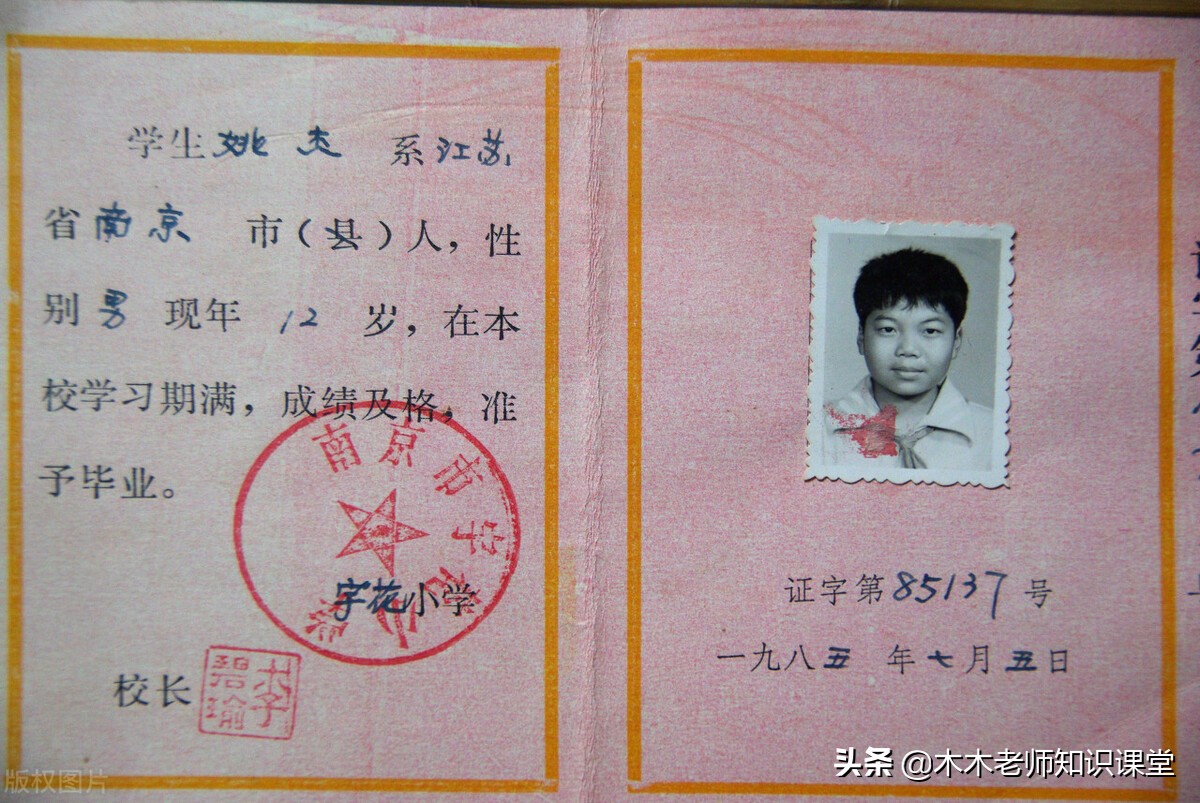 学生姚杰 系江苏
省南京 市（县）人，性
别男 现年 12 岁，在本
校学习期满，成绩及格，准
予毕业。
南京市宇花小学
宇花小学
校长
李碧瑜
证字第85137号
一九八五年七月五日
版权图片
头条 @木木老师知识课堂